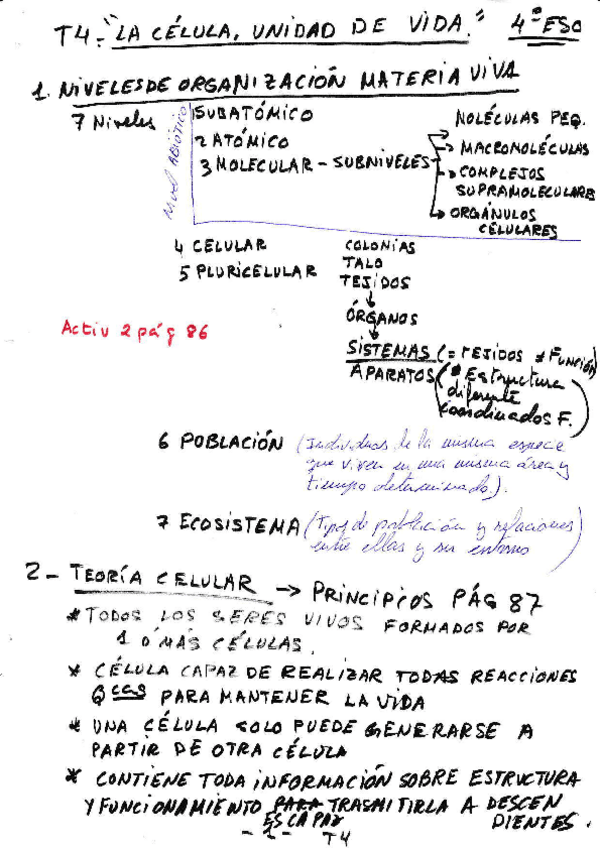 T4.- "LA CÉLULA, UNIDAD DE VIDA." 4º ESO
1. NIVELES DE ORGANIZACIÓN MATERIA VIVA
7 Niveles
Nivel ABIÓTICO
1 SUBATÓMICO
2 ATÓMICO
3 MOLECULAR - SUBNIVELES
MOLÉCULAS PEQ.
MACROMOLÉCULAS
COMPLEJOS
SUPRAMOLECULARES
ORGÁNULOS
CELULARES
4 CELULAR
5 PLURICELULAR
COLONIAS
TALO
TEJIDOS
ÓRGANOS
SISTEMAS (= TEJIDOS ≠ FUNCIÓN)
APARATOS (≠ Estructura
diferente
coordinados F.)
Activ 2 pág 86
6 POBLACIÓN (Individuos de la misma especie
que viven en una misma área y
tiempo determinado.)
7 ECOSISTEMA (Tipos de población y relaciones
entre ellas y su entorno)
2 - TEORÍA CELULAR -> PRINCIPIOS PÁG 87
* TODOS LOS SERES VIVOS FORMADOS POR
1 O MÁS CÉLULAS.
* CÉLULA CAPAZ DE REALIZAR TODAS REACCIONES
Qcas PARA MANTENER LA VIDA
* UNA CÉLULA SOLO PUEDE GENERARSE A
PARTIR DE OTRA CÉLULA
* CONTIENE TODA INFORMACIÓN SOBRE ESTRUCTURA
Y FUNCIONAMIENTO PARA TRASMITIRLA A DESCEN
ES CAPAZ DIENTES.
- 1 - T4